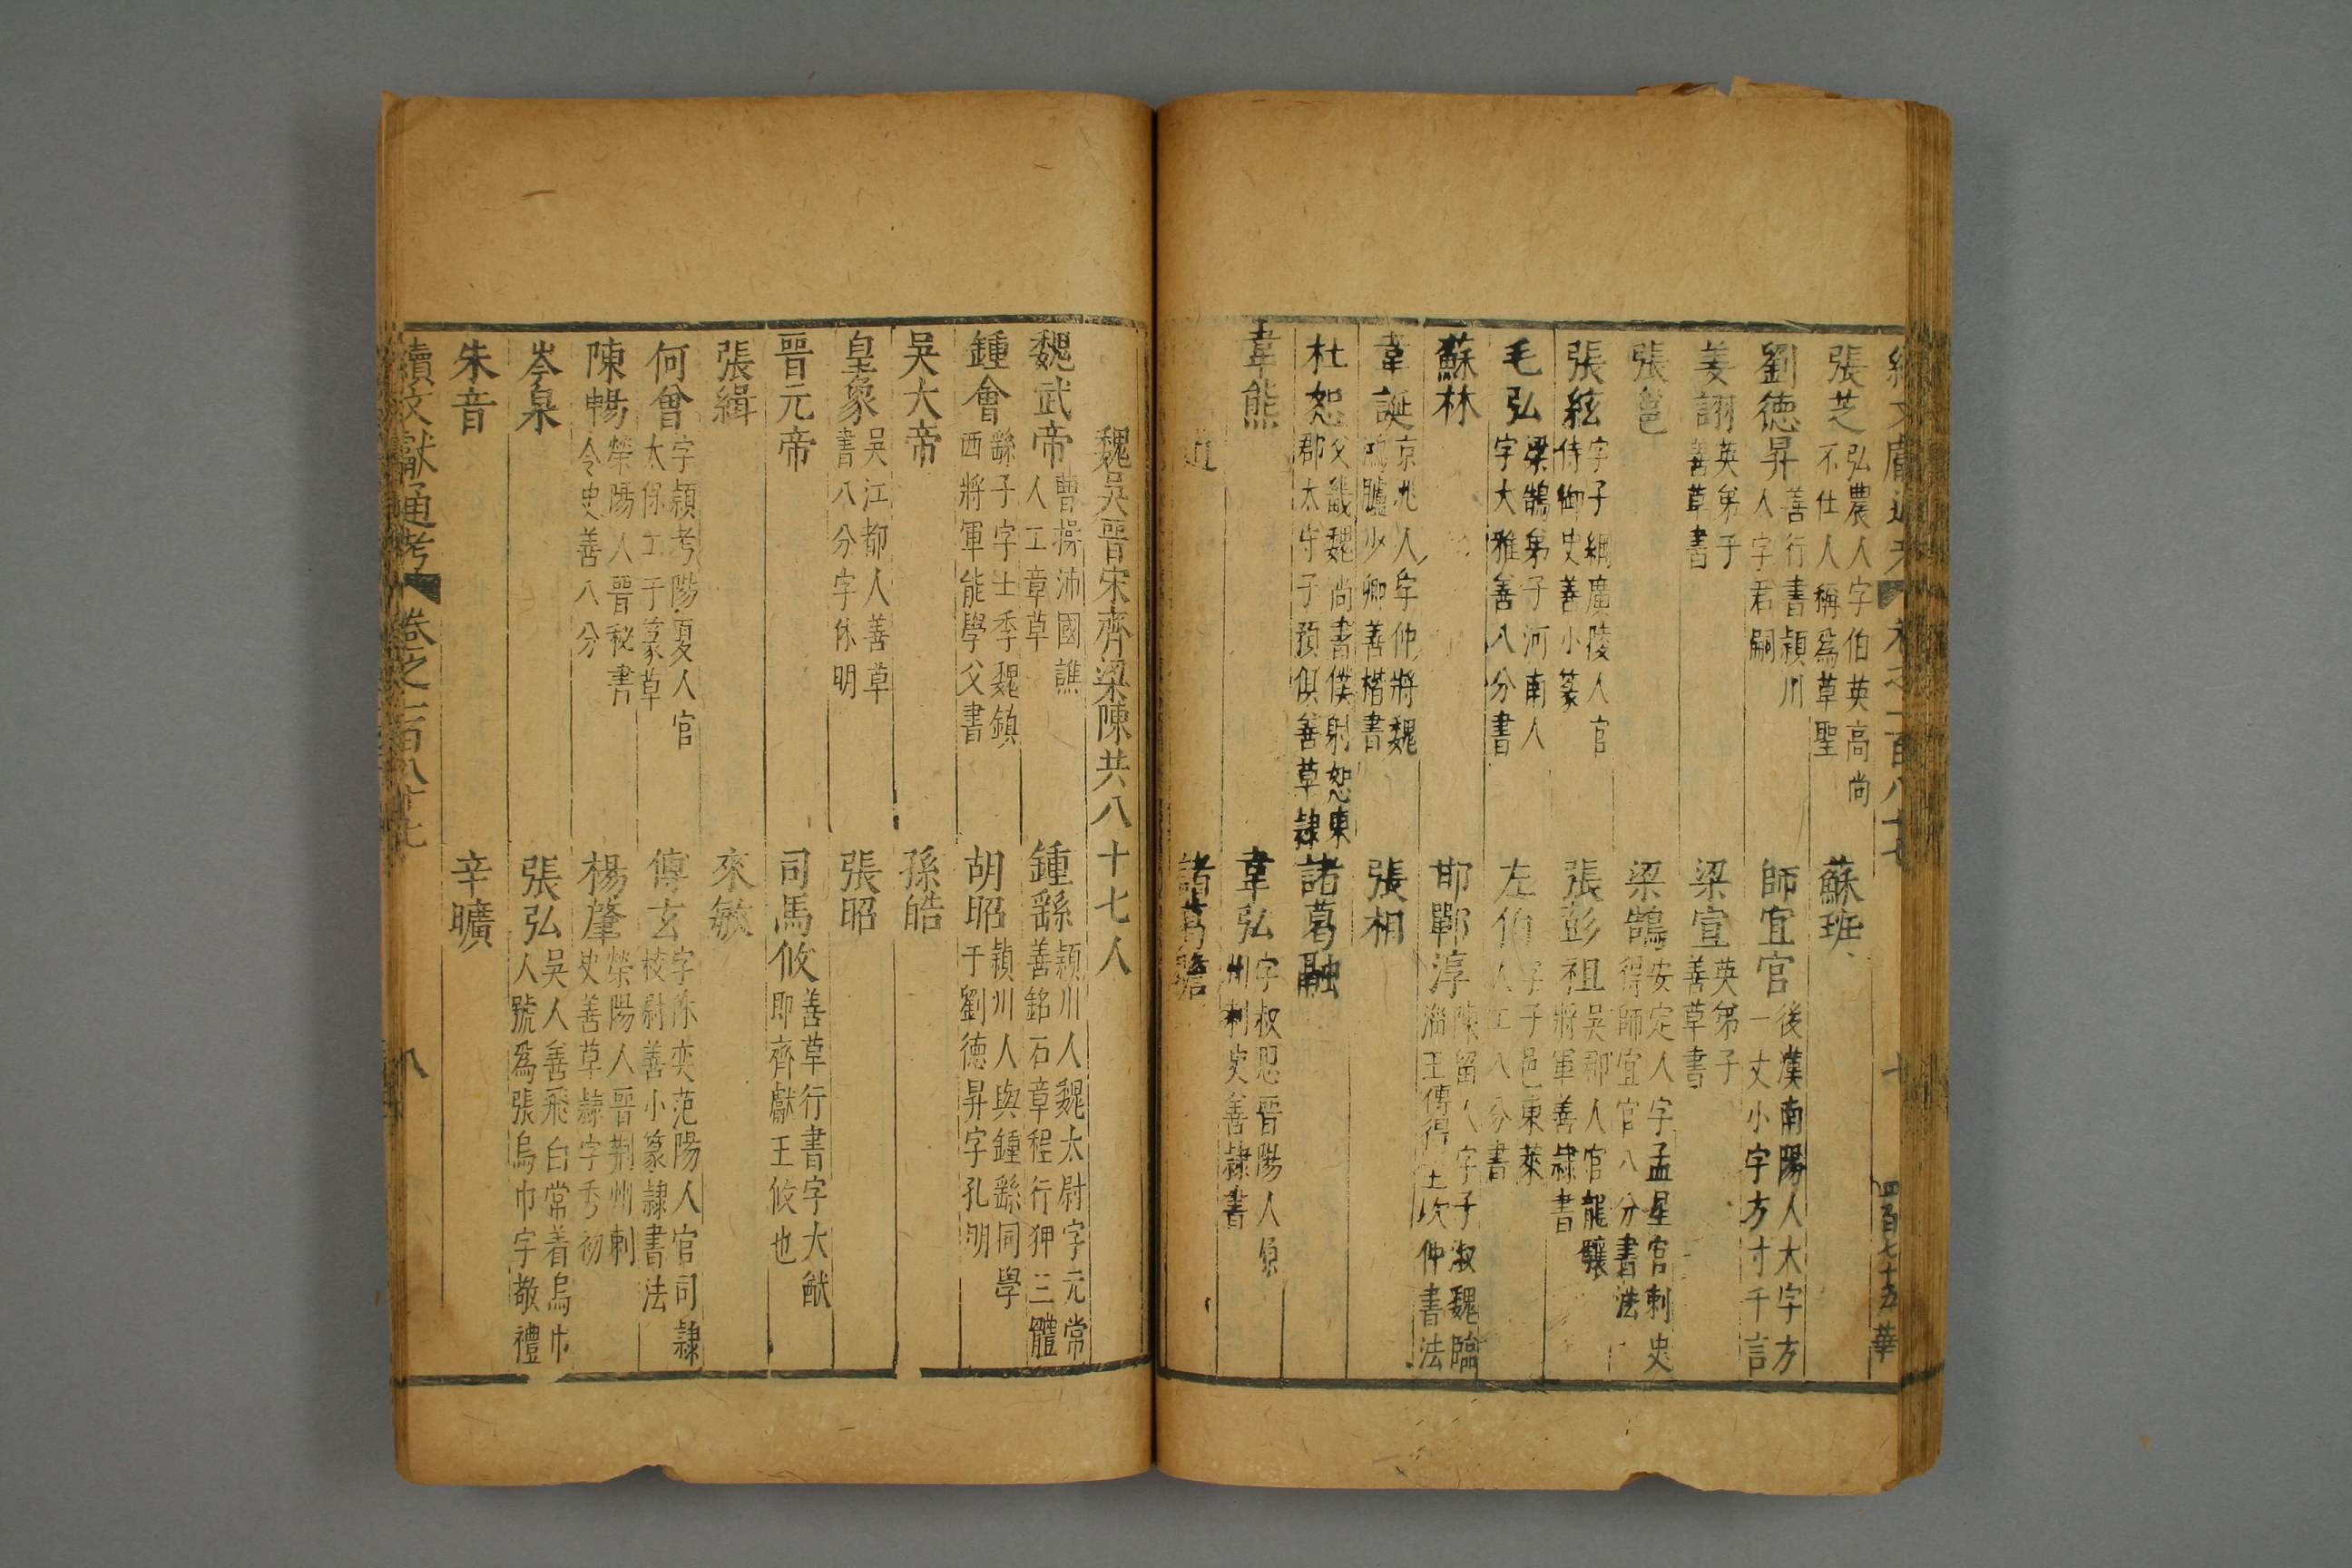 續文獻通考 卷之一百八十七 七 四百七十五 華
張芝 弘農人字伯英高尚不仕人稱爲草聖 蘇班
劉德昇 善行書頴川人字君嗣 師宜官 後漢南陽人大字方一丈小字方寸千言
姜詡 英弟子善草書 梁宣 英弟子善草書
張邕 梁鵠 安定人字孟星官刺史得師宜官八分書法
張紘 字子綱廣陵人官侍御史善小篆 張彭祖 吳郡人官龍驤將軍善隷書
毛弘 梁鵠弟子河南人字大雅善八分書 左伯 字子邑東萊人工八分書
蘇林 邯鄲淳 陳留人字子淑魏臨淄王傳得王次仲書法
韋誕 京兆人字仲將魏鴻臚少卿善楷書 張相
杜恕 父畿魏尚書僕射恕東郡太守子預俱善草隷 諸葛融
韋熊 韋弘 字叔思晉陽人原州刺史善隷書
諸葛瞻
魏吳晉宋齊梁陳共八十七人
魏武帝 曹操沛國譙人工章草 鍾繇 頴川人魏太尉字元常善銘石章程行狎三體
鍾會 繇子字士季魏鎮西將軍能學父書 胡昭 頴川人與鍾繇同學于劉德昇字孔明
吳大帝 孫皓
皇象 吳江都人善草書八分字休明 張昭
晉元帝 司馬攸 善草行書字大猷即齊獻王攸也
張緝 來敏
何曾 字頴考陽夏人官太保工于篆草 傅玄 字休奕范陽人官司隷校尉善小篆隷書法
陳暢 滎陽人晉秘書令史善八分 楊肇 滎陽人晉荆州刺史善草隷字秀初
岑泉 張弘 吳人善飛白常着烏巾人號爲張烏巾字敬禮
朱音 辛曠
續文獻通考 卷之一百八十七 八